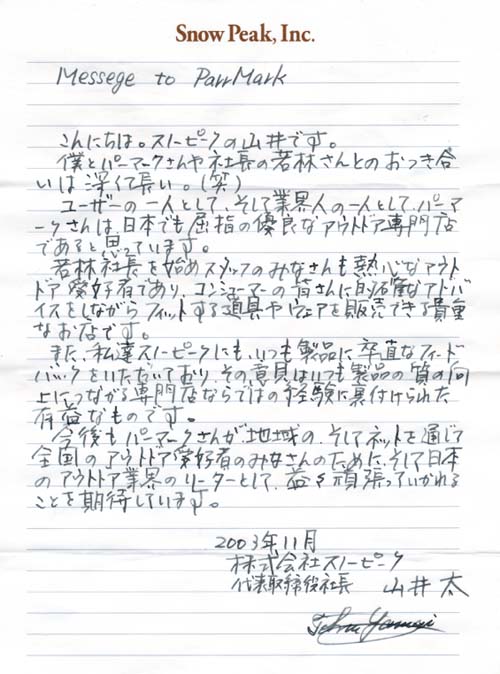 Snow Peak, Inc.
Messege to ParrMark
こんにちは。スノーピークの山井です。
僕とパーマークさんや社長の若林さんとのおつき合
いは深くて長い。(笑)
ユーザーの一人として、そして業界人の一人として、パーマ
ークさんは、日本でも屈指の優良なアウトドア専門店
であると思っています。
若林社長を始めスタッフのみなさんも熱心なアウト
ドア愛好者であり、コンシューマーの皆さんに的確なアドバ
イスをしながらフィットする道具やウェアを販売できる貴重
なお店です。
また、私達スノーピークにも、いつも製品に率直なフィード
バックをいただいており、その意見はいつも製品の質の向
上につながる専門店ならではの経験に裏付けられた
有益なものです。
今後もパーマークさんが地域の、そしてネットを通じて
全国のアウトドア愛好者のみなさんのために、そして日本
のアウトドア業界のリーダーとして、益々頑張っていかれる
ことを期待しています。
2003年11月
株式会社スノーピーク
代表取締役社長 山井太
Tohru Yamai